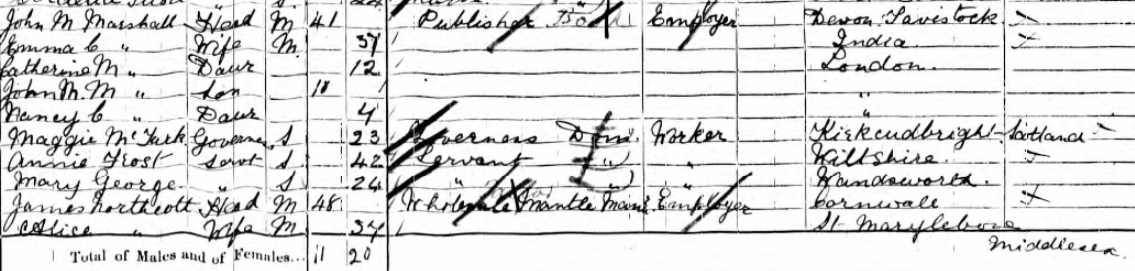 John M. Marshall Head M 41 Publisher Book Employer Devon Tavistock
Emma C " Wife M 37 India
Catherine M " Daur 12 London
John M. M " Son 10 "
Nancy C " Daur 4 "
Maggie McTurk Governess S 23 Governess Dom Worker Kirkcudbright Scotland
Annie Frost Servt S 42 Servant " " Wiltshire
Mary George " S 24 " " " Wandsworth
James Northcott Head M 48 Wholesale Mantle Manf Employer Cornwall
Alice " Wife M 37 St Marylebone
Middlesex
Total of Males and of Females... 11 20